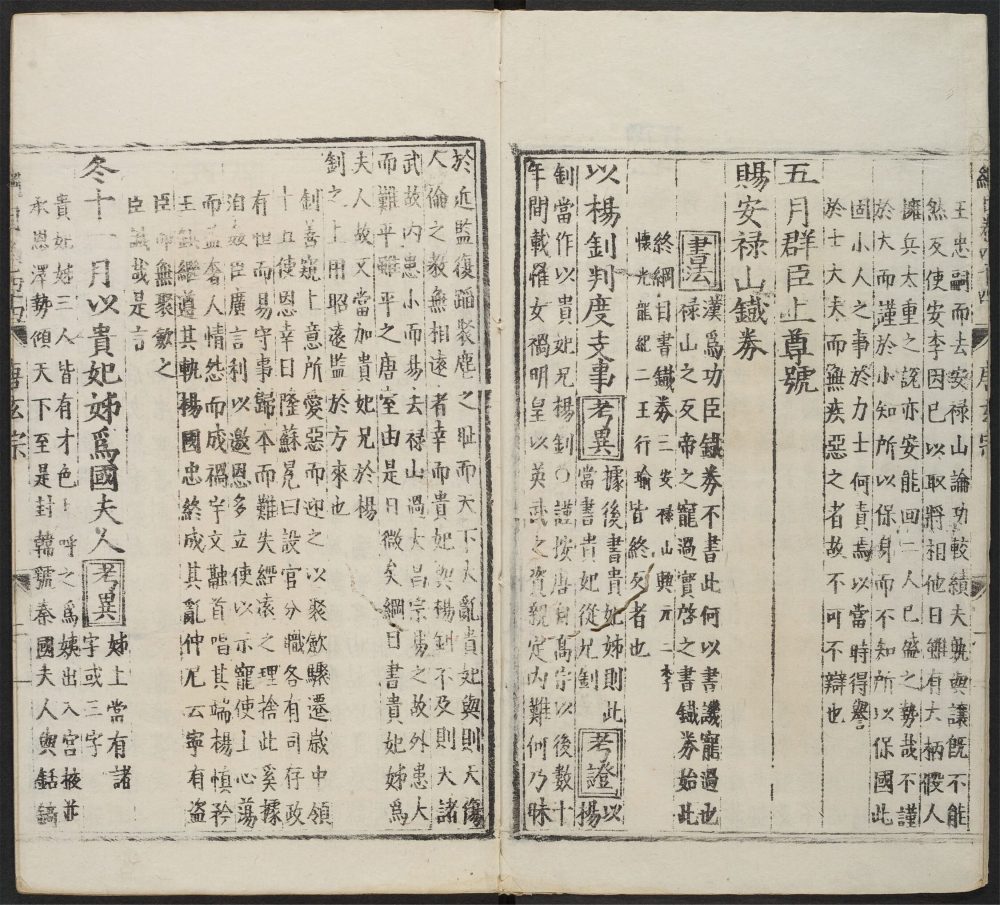 王忠嗣而去安禄山論功較績夫孰與讓旣不能
然反使安李因已以取將相他日雖有大柄假人
擁兵太重之說亦安能回二人已盛之勢哉不謹
於大而謹於小知所以保身而不知所以保國此
固小人之事於力士何責焉以當時得譽
於士大夫而無疾惡之者故不可不辯也
五月群臣上尊號
賜安禄山鐵券
書法
漢爲功臣鐵券不書此何以書譏寵過也
禄山之反帝之寵過實啓之書鐵券始此
終綱目書鐵券三安禄山興元二李
懷光龍紀二王行瑜皆終反者也
以楊釗判度支事
考異
據後書貴妃姊則此
當書貴妃從兄釗
考證
以
楊
釗當作以貴妃兄楊釗〇謹按唐自高宗以後數十
年間載罹女禍明皇以英武之資親定内難何乃昧
於近監復蹈聚麀之耻而天下大亂貴妃與則大傷
人倫之教無相遠者幸而貴妃與楊釗不及則大諸
武故内患小而易去禄山過大昌宗易之故外患大
而難平雖平之唐室由是日微矣綱目書貴妃姊爲
夫人故又當加貴妃兄於楊
釗之上用昭遠監於方來也
釗善窺上意所愛惡而迎之以聚歛驟遷歲中領
十五使恩幸日隆蘇冕曰設官分職各有司存政
有恒而易守事歸本而難失經遠之理捨此奚據
洎姦臣廣言利以邀恩多立使以示寵使上心蕩
而益奢人情怨而成禍宇文融首唱其端楊慎矜
王鉷繼遵其軌楊國忠終成其亂仲尼云寧有盜
臣而無聚歛之
臣誠哉是言
冬十一月以貴妃姊爲國夫人
考異
姊上當有諸
字或三字
貴妃姊三人皆有才色上呼之爲姨出入宫掖並
承恩澤勢傾天下至是封韓虢秦國夫人與銛錡